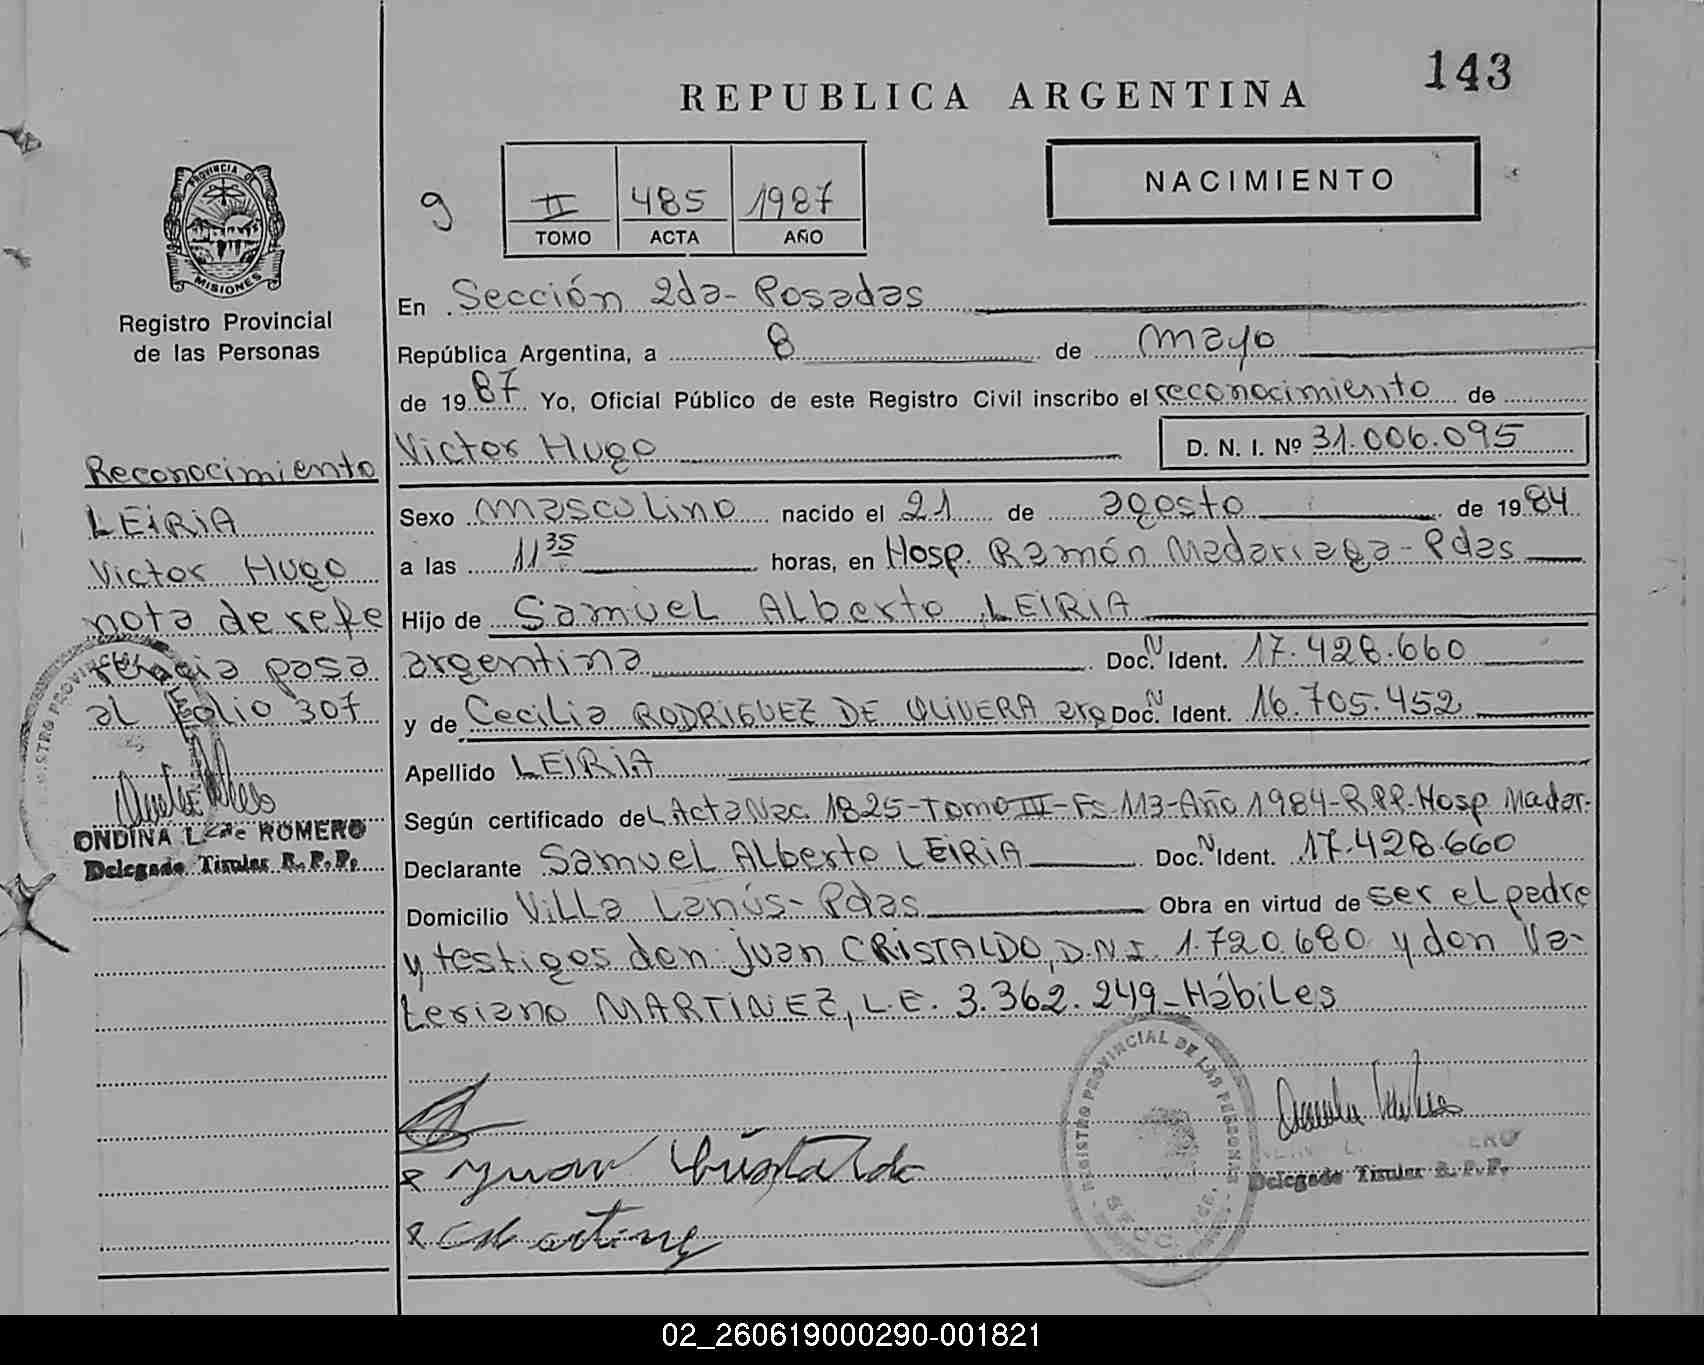 143
REPUBLICA ARGENTINA
NACIMIENTO
9
II 485 1987
TOMO ACTA AÑO
PROVINCIA DE
MISIONES
Registro Provincial
de las Personas
En Sección 2da- Posadas
República Argentina, a 8 de mayo
de 1987 Yo, Oficial Público de este Registro Civil inscribo el reconocimiento de
Victor Hugo D. N. I. Nº 31.006.095
Sexo masculino nacido el 21 de agosto de 1984
a las 11 35 horas, en Hosp. Ramón Madariaga- Pdas
Hijo de Samuel Alberto LEIRIA
argentina Doc. N Ident. 17.428.660
y de Cecilia RODRIGUEZ DE OLIVERA arg Doc. N Ident. 16.705.452
Apellido LEIRIA
Según certificado del Acta Nac. 1825-Tomo III-Fs.113-Año 1984-R.P.P.-Hosp. Madar.
Declarante Samuel Alberto LEIRIA Doc. N Ident. 17.428.660
Domicilio Villa Lanús- Pdas Obra en virtud de ser el padre
y testigos don juan CRISTALDO, D.N.I. 1.720.680 y don Va-
leriano MARTINEZ, L.E. 3.362.249-Hábiles
Reconocimiento
LEIRIA
Victor Hugo
nota de refe
rencia pasa
al folio 307
ONDINA ROMERO
Delegado Titular R. P. P.
Juan Cristaldo
REGISTRO PROVINCIAL DE LAS PERSONAS
Delegado Titular R. P. P.
02_260619000290-001821